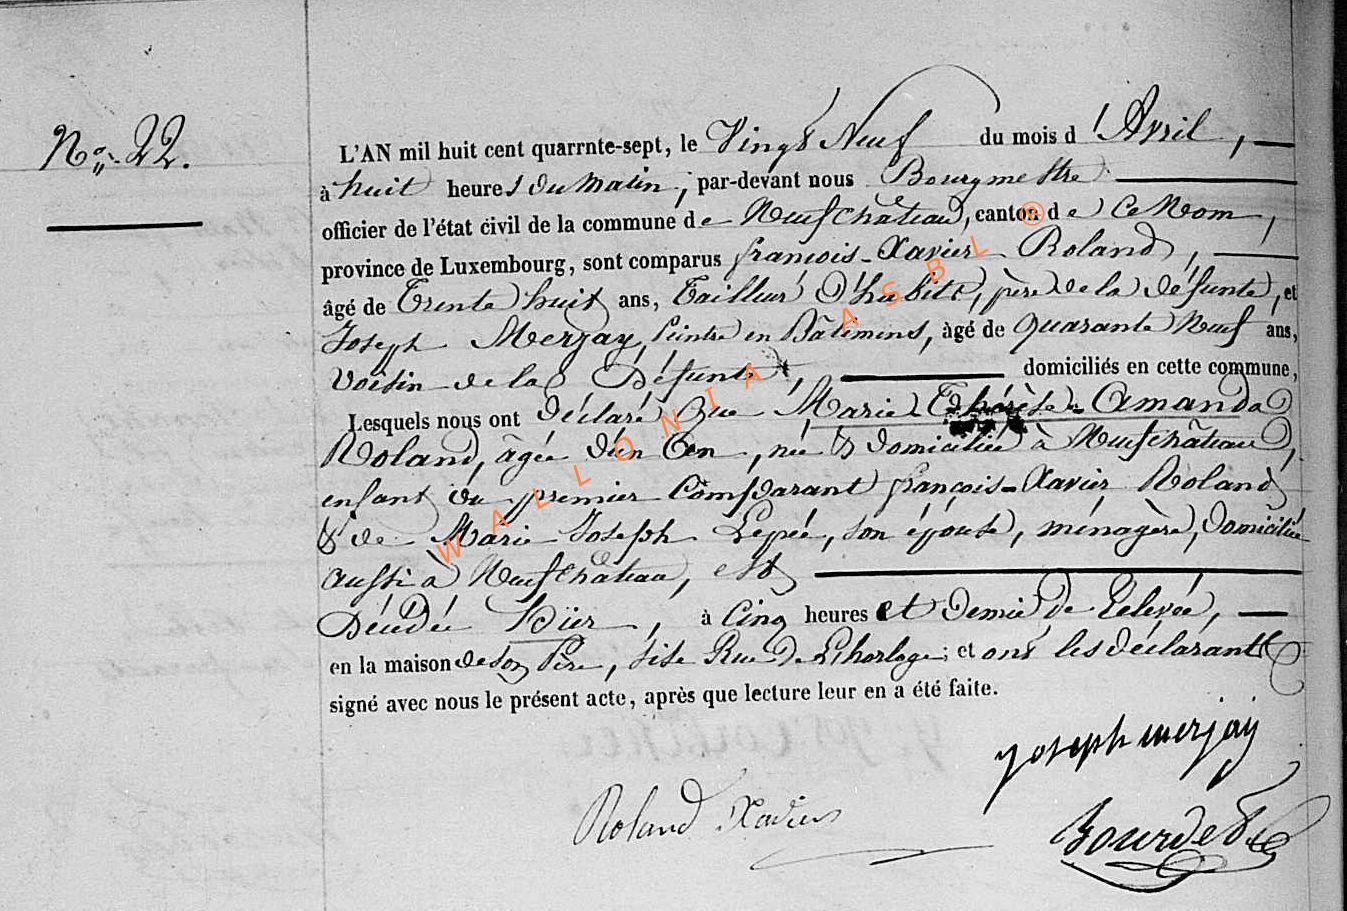 N° 22.
L'AN mil huit cent quarrnte-sept, le Vingt Neuf du mois d'Avril,
à huit heures du matin, par-devant nous Bourgmestre
officier de l'état civil de la commune de Neufchâteau, canton de Ce Nom,
province de Luxembourg, sont comparus françois-Xavier Roland,
âgé de Trente huit ans, Tailleur d'habits, père de la défunte, et
Joseph Merjay, Peintre en Bâtimens, âgé de Quarante Neuf ans,
Voisin de la Défunte, domiciliés en cette commune,
Lesquels nous ont déclaré Que Marie-Thérèse-Amanda
Roland, âgée d'un an, née & domiciliée à Neufchâteau,
enfant du premier Comparant françois-Xavier Roland
& de Marie Joseph Lepée, son épouse, ménagère, domiciliée
aussi à Neufchâteau, est
Décédée Hier, à Cinq heures et Demie de Relevée,
en la maison de son Père, sise Rue De L'horloge; et ont les déclarants
signé avec nous le présent acte, après que lecture leur en a été faite.
joseph merjay
Roland Xavier
WALLONIA ASBL ®